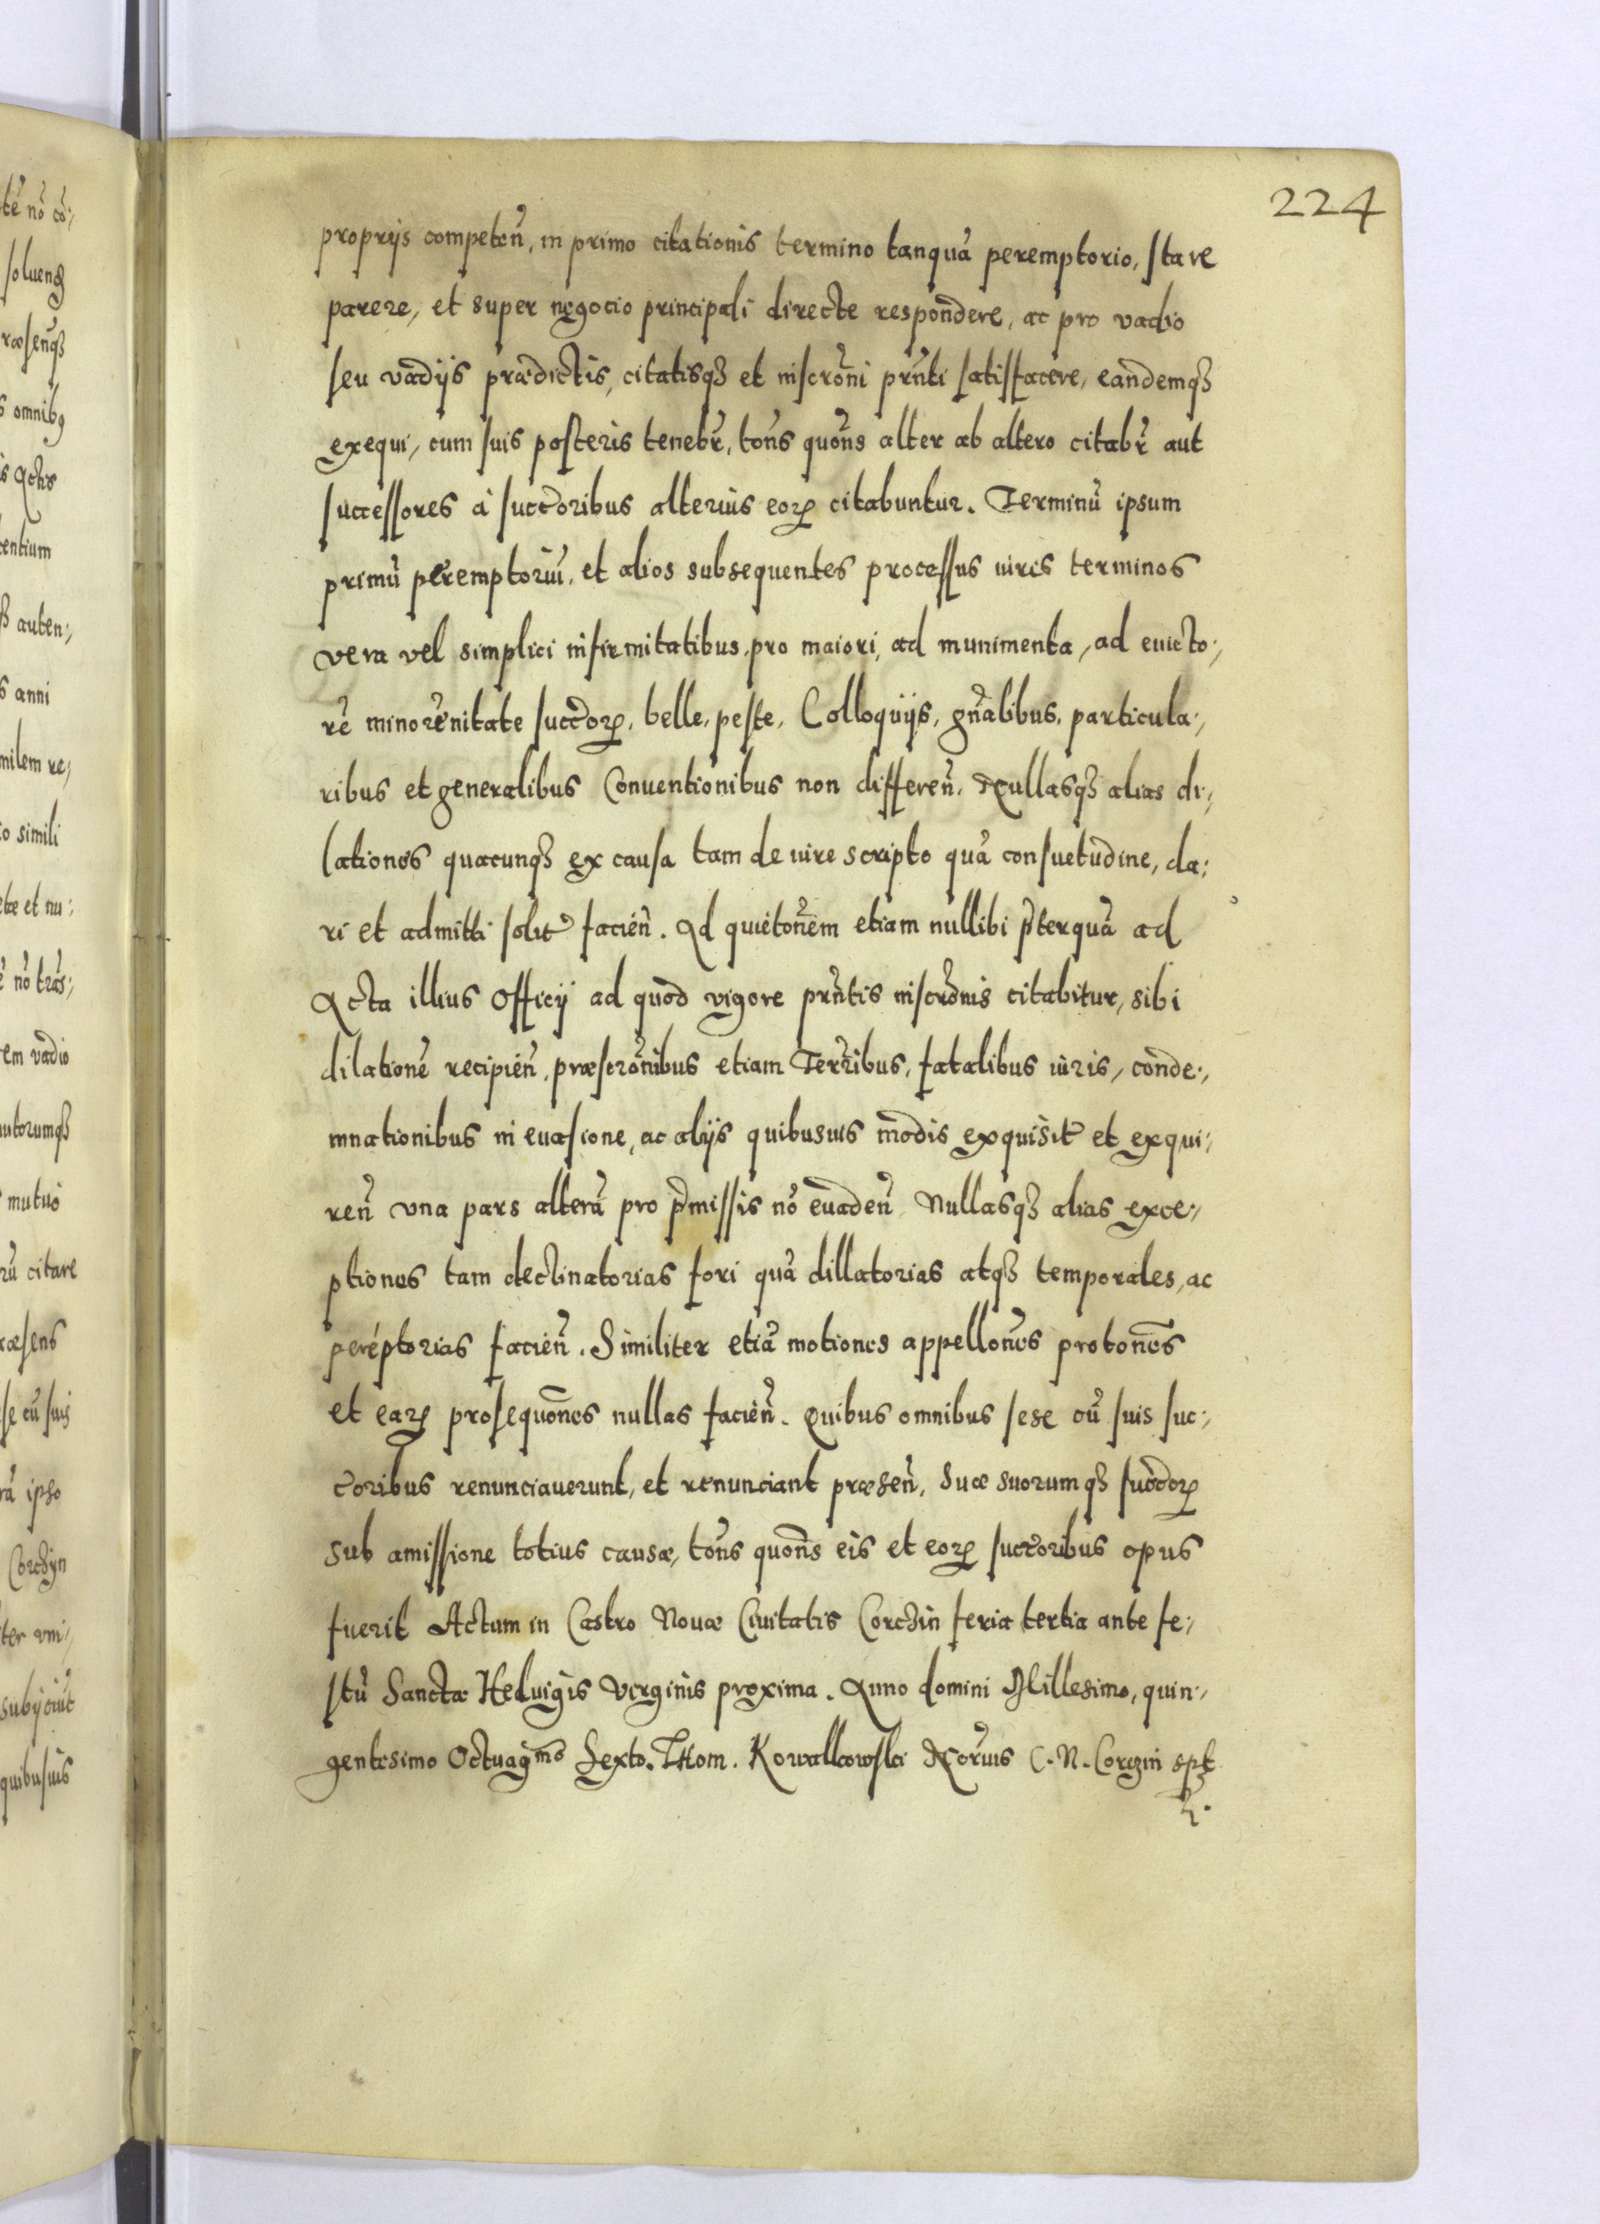 224
proprijs competeñ, in primo citationis termino tanquā peremptorio, stare
parere, et super negocio principali directe respondere, ac pro vadio
seu vadijs prædictis, citatisqȝ et inscrõni prñti satisfacere, eandemqȝ
exequi, cum suis posteris tenebr̃, tõns quõns alter ab altero citabr̃ aut
successores à succ̃oribus alterius eoꝝ citabuntur. Terminū ipsum
primū peremptoriū, et alios subsequentes processus iuris terminos
vera vel simplici infirmitatibus, pro maiori, ad munimenta, ad euicto:,
rē minorēnitate succ̃oꝝ, belle, peste, Colloquijs, gñalibus, particula:,
ribus et generalibus Conuentionibus non differeñ. Nullasqȝ alias di:,
lationes quacunqȝ ex causa tam de iure scripto quā consuetudine, da:
ri et admitti solit̃ facieñ. Ad quietõnem etiam nullibi p̃terquā ad
Acta illius Officij ad quod vigore prñtis inscrõnis citabitur, sibi
dilationē recipieñ, præscrõnibus etiam Terr̃ibus, fatalibus iuris, conde:,
mnationibus in euasione, ac alijs quibusuis modis exquisit̃ et exqui:,
reñ vna pars alterā pro p̃missis nō euadeñ. Nullasqȝ alias exce:,
ptiones tam declinatorias fori quā dillatorias atqȝ temporales, ac
perēptorias facieñ. Similiter etiā motiones appellõnes protõnes
et eaꝝ prosequõnes nullas facieñ. Quibus omnibus sese cū suis suc:,
c̃oribus renunciauerunt, et renunciant præseñ, suæ suorumqȝ succ̃oꝝ
sub amissione totius causæ, tõns quõns eis et eoꝝ succ̃oribus opus
fuerit Actum in Castro Nouæ Ciuitatis Corchin feria tertia ante fe:,
stū Sanctæ Heduigis Virginis proxima. Anno domini Millesimo, quin:,
gentesimo Octuagmo Sexto. Thom. Kowalkowski Nor̃ius C. N. Corczin spt